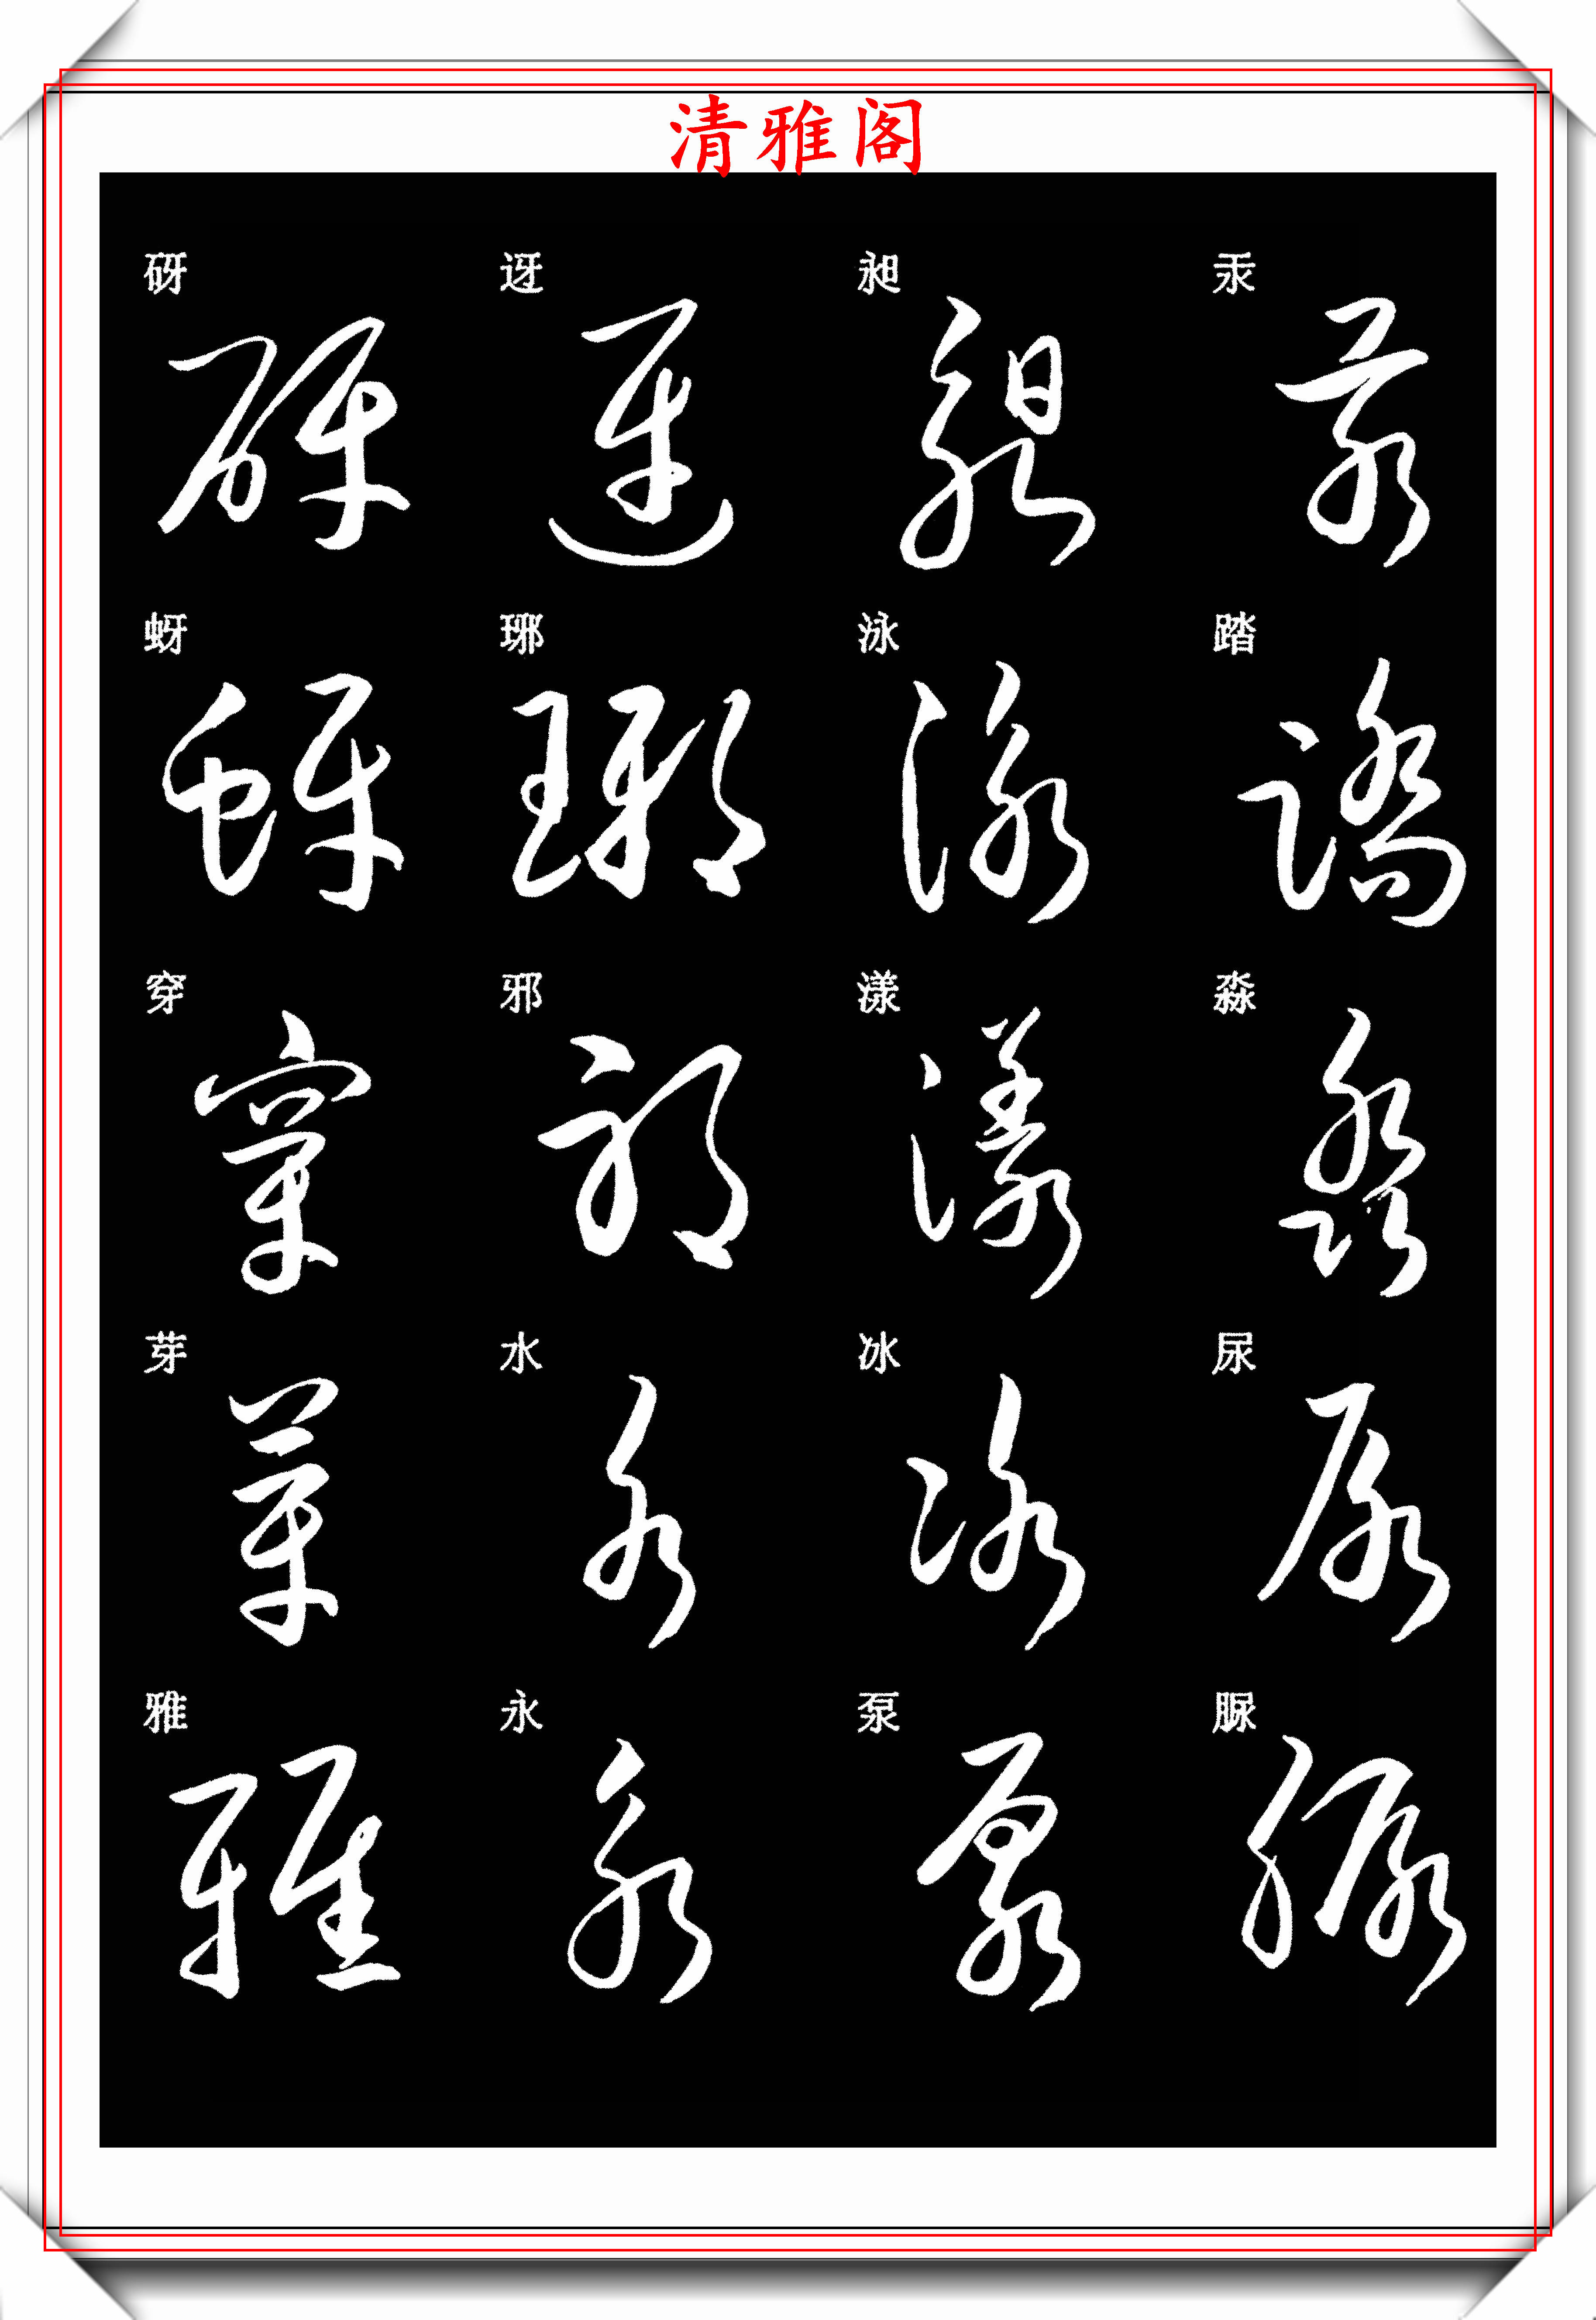 清雅阁
砑 迓 昶 汞
蚜 琊 泳 踏
穿 邪 漾 淼
芽 水 冰 尿
雅 永 泵 脲